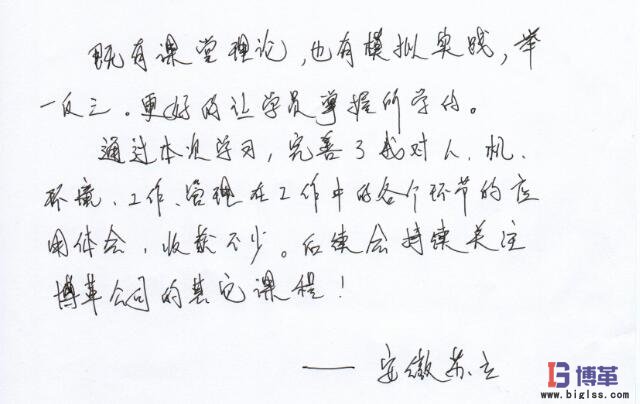 既有课堂理论，也有模拟实战，举
一反三。更好的让学员掌握所学的。
通过本次学习，完善了我对人、机、
环境、工作、管理在工作中的各个环节的应
用体会，收获不少。后续会持续关注
博革公司的其它课程！
——安徽苏立
博革
www.biglss.com